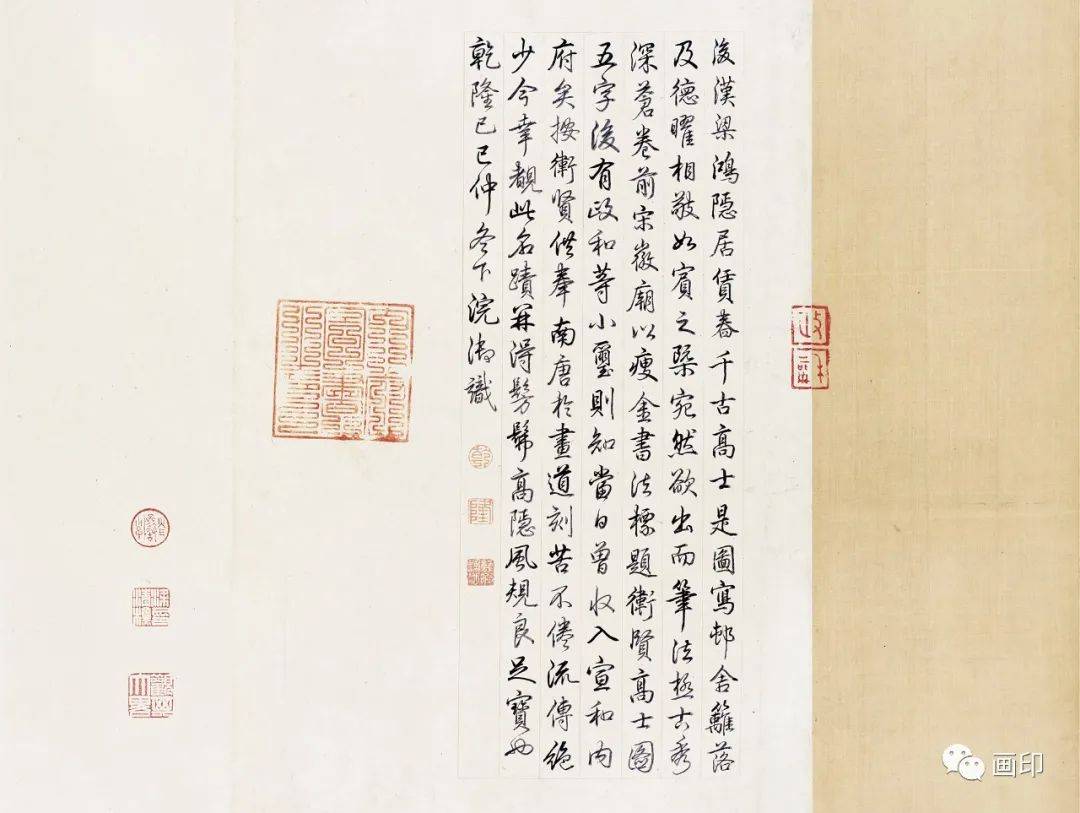 後漢梁鴻隱居賃舂千古高士是圖寫邨舍籬落
及德曜相敬如賓之槩宛然欲出而筆法極古秀
深蒼卷前宋徽廟以瘦金書法標題衛賢高士圖
五字後有政和等小璽則知當日曾收入宣和內
府矣按衛賢供奉南唐於畫道刻苦不倦流傳絶
少今幸覩此名蹟并得髣髴高隱風規良足寶也
乾隆己巳仲冬下浣御識
乾
隆
政和
画印